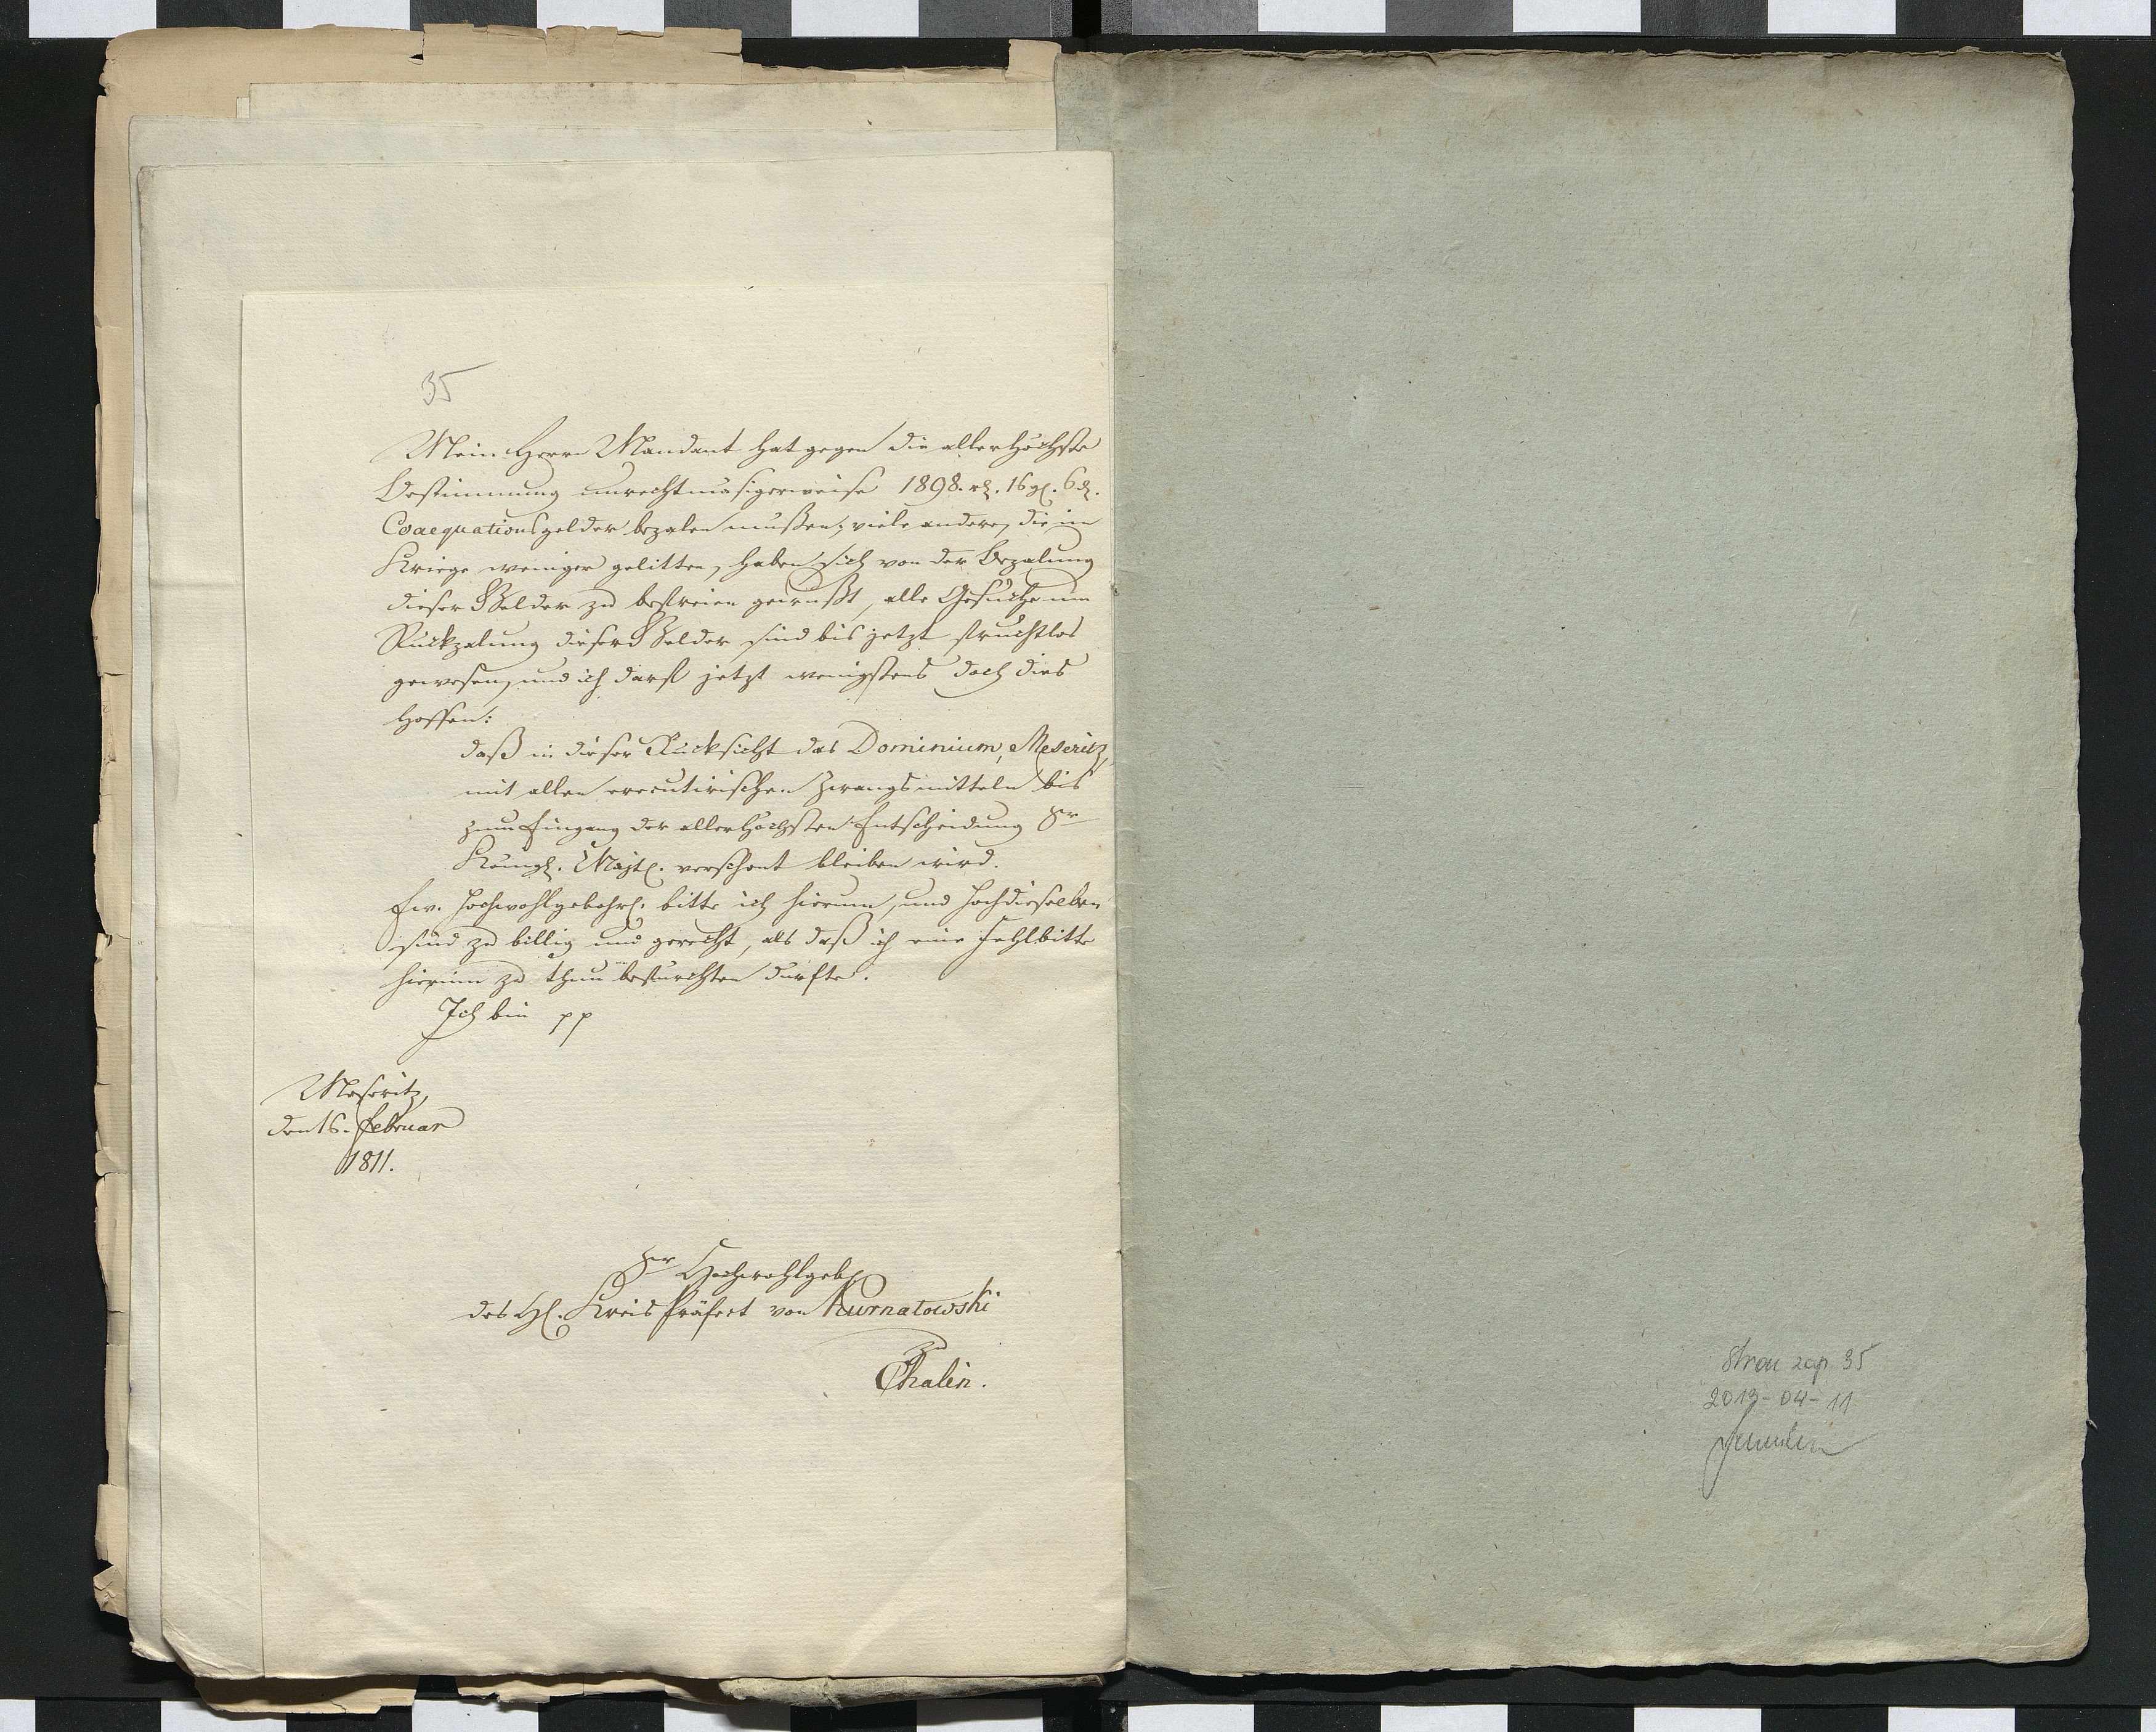 35
Mein Herr Mandant hat gegen die allerhöchste
Bestimmung unrechtmäsigerweise 1898. rh. 16 gl. 6 d.
Coaequationsgelder bezalen müßen; viele andere, die im
Kriege weniger gelitten, haben sich von der Bezalung
dieser Gelder zu befreien gewußt, alle Gesuche um
Rückzalung dieser Gelder sind bis jetzt fruchtlos
gewesen, und ich darf jetzt wenigstens doch dies
hoffen:
daß in dieser Rücksicht das Dominium, Meseritz,
mit allen executivischen Zwangsmitteln bis
zum Eingang der allerhöchsten Entscheidung Sr
Königl. Majt. verschont bleiben wird.
Ew. Hochwohlgebohrl. bitte ich hierum, und Hochdieselben
sind zu billig und gerecht, als daß ich eine Fehlbitte
hierinn zu thun befürchten dürfte.
Ich bin pp
Meseritz,
den 16. Februar
1811.
Sr Hochwohlgeb.
des H. Kreis Präfect von Kurnatowski
zu
Chalin.
Stron zap. 35
2013-04-11